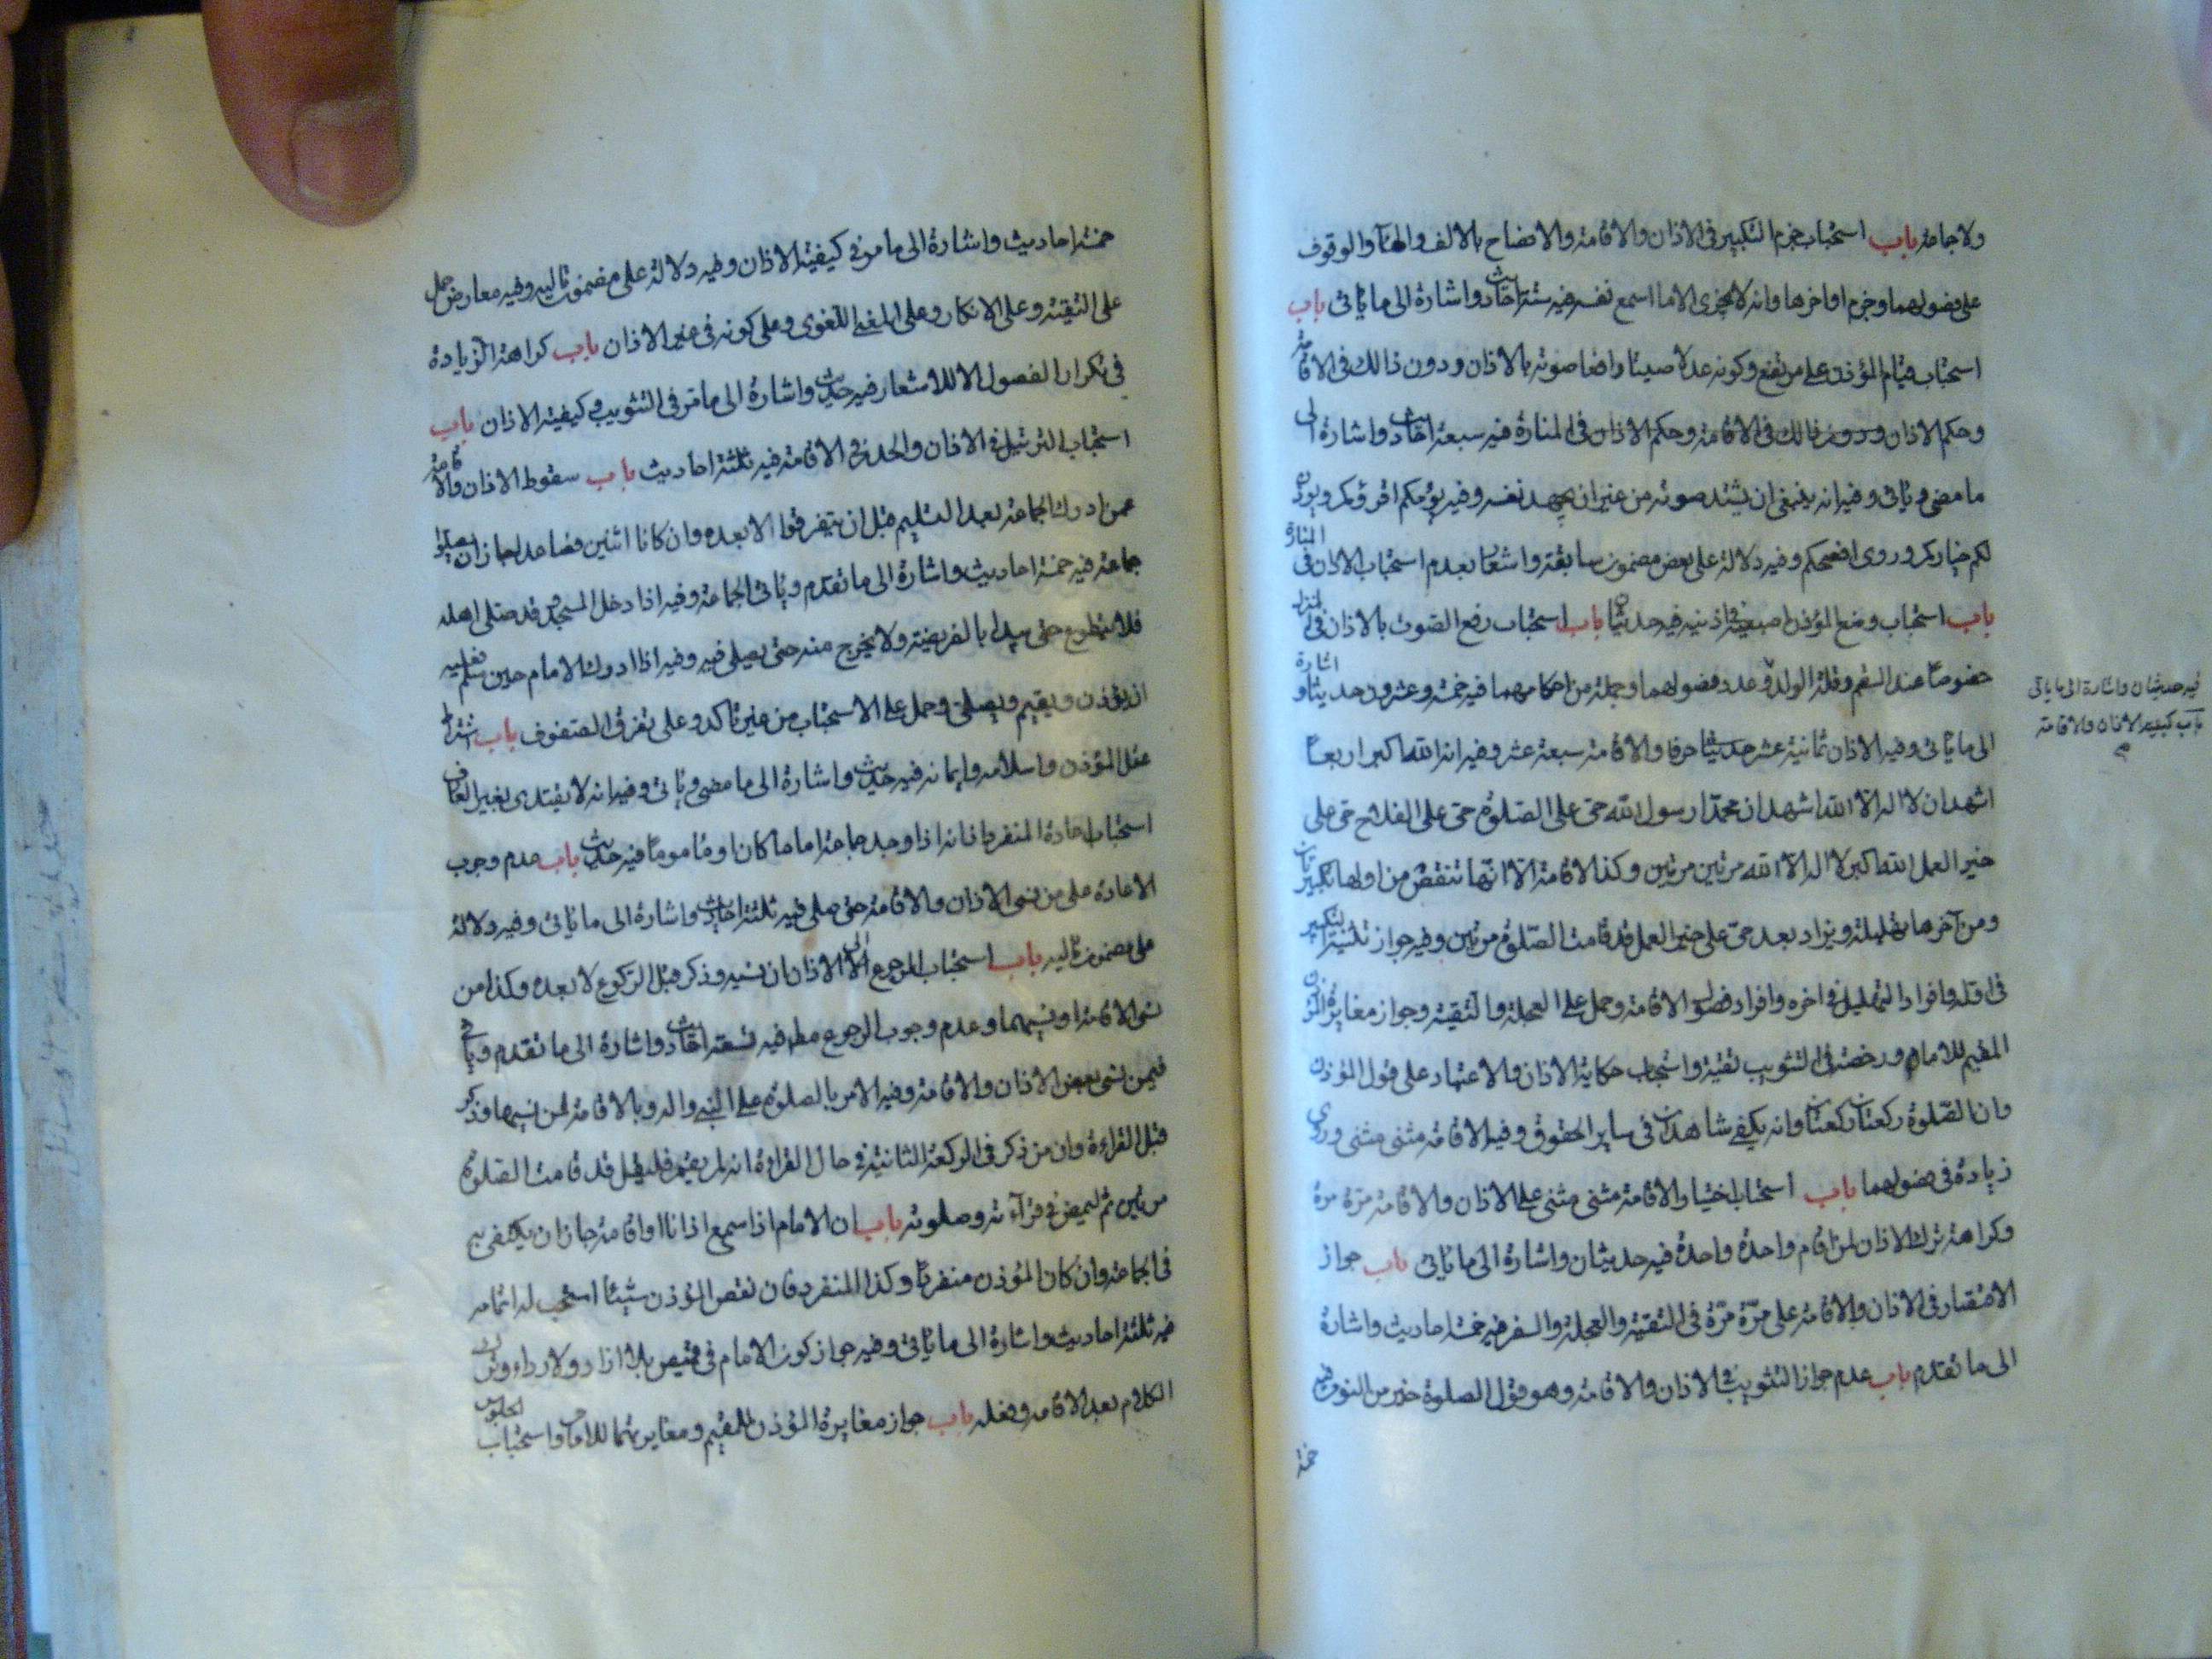 ولا جامه باب استحباب جزم التكبير فى الاذان والاقامة والافصاح بالالف والهاء والوقوف
على فصولهما وجزم اواخرها وانه لا يجزى الا ما اسمع نفسه فيه ستة احاديث واشارة الى ما ياتى باب
استحباب قيام المؤذن على مرتفع وكونه عدلا صيتا رافعا صوته بالاذان ودون ذالك فى الاقامة
وحكم الاذان ودون ذالك فى الاقامة وحكم الاذان فى المنارة فيه سبعة احاديث واشارة الى
ما مضى وياتى وفيه انه ينبغى ان يشتد صوته من غير ان يجهد نفسه وفيه يؤمكم اقرؤكم ويؤذن
لكم خياركم وروى افصحكم وفيه دلالة على بعض مضمون سابقته واشعار بعدم استحباب الاذان فى المنارة
باب استحباب وضع المؤذن اصبعيه فى اذنيه فيه حديثان باب استحباب رفع الصوت بالاذان فى المنزل
خصوصا عند السقم وقلة الولد وعدد فصولهما وجملة من احكامهما فيه خمسة وعشرون حديثا واشارة
الى ما ياتى وفيه الاذان ثمانية عشر حرفا والاقامة سبعة عشر وفيه انه الله اكبر اربعا
اشهد ان لا اله الا الله اشهد ان محمدا رسول الله حى على الصلوة حى على الفلاح حى على
خير العمل الله اكبر لا اله الا الله مرتين مرتين وكذا الاقامة الا انها تنقص من اولها تكبيرتان
ومن آخرها تهليلة ويزاد بعد حى على خير العمل قد قامت الصلوة مرتين وفيه جواز تثنية التكبير
فى اوله وافراد التهليل فى اخره وافراد فصول الاقامة وحمل على العجلة والتقية وجواز مغايرة المؤذن
المقيم للامام ورخصة فى التثويب تقية واستحباب حكاية الاذان والاعتماد على قول المؤذن
وان الصلوة ركعتان ركعتان وانه يكفى شاهدان فى ساير الحقوق وفيه الاقامة مثنى مثنى وروى
زيادة فى فصولهما باب استحباب اختيار الاقامة مثنى مثنى على الاذان والاقامة مرة مرة
وكراهة ترك الاذان لمن اقام واحدة واحدة فيه حديثان واشارة الى ما ياتى باب جواز
الاقتصار فى الاذان والاقامة على مرة مرة فى التقية والعجلة والسفر فيه خمسة احاديث واشارة
الى ما تقدم باب عدم جواز التثويب فى الاذان والاقامة وهو قول الصلوة خير من النوم فيه
خمسة
فيه حديثان واشارة الى ما ياتى
باب كيفية الاذان والاقامة
خمسة احاديث واشارة الى ما مر فى كيفية الاذان وفيه دلالة على مضمون تاليه وفيه معارض حمل
على التقية وعلى الانكار وعلى المعنى اللغوى وعلى كونه فى غير الاذان باب كراهة الزيادة
فى تكرار الفصول الا للاشعار فيه حديث واشارة الى ما مر فى التثويب وكيفية الاذان باب
استحباب الترتيل فى الاذان والحدر فى الاقامة فيه ثلثة احاديث باب سقوط الاذان والاقامة
عمن ادرك الجماعة بعد التسليم قبل ان يتفرقوا لا بعده وان كانا اثنين فصاعدا جاز ان يصلوا
جماعة فيه خمسة احاديث واشارة الى ما تقدم وياتى الجماعة وفيه اذا دخل المسجد وقد صلى اهله
فلا يتطوع حتى يبدا بالفريضة ولا يخرج منه حتى يصلى فيه وفيه اذا ادرك الامام حين سلم فعليه
ان يؤذن ويقيم ويصلى وحمل على الاستحباب من غير تاكد وعلى تفرق الصفوف باب اشتراط
عقل المؤذن واسلامه وايمانه فيه حديث واشارة الى ما مضى وياتى وفيه انه لا يقتدى بغير العارف
استحباب اعادة المنفرد اذانه اذا وجد جماعة اماما كان او مأموما فيه حديث باب عدم وجوب
الاعادة على من نسى الاذان والاقامة حتى صلى فيه ثلثة احاديث واشارة الى ما ياتى وفيه دلالة
على مضمون تاليه باب استحباب الرجوع الى الاذان ان نسيه وذكر قبل الركوع لا بعده وكذا من
نسى الاقامة او نسيهما وعدم وجوب الرجوع مطلقا فيه تسعة احاديث واشارة الى ما تقدم وياتى
فيمن نسى بعض الاذان والاقامة وفيه الامر بالصلوة على النبى واله وبالاقامة لمن نسيها وذكر
قبل القراءة وان من ذكر فى الركعة الثانية فى حال القراءة انه لم يقيم فليقل قد قامت الصلوة
مرتين ثم ليمض فى قرآءته وصلوته باب ان الامام اذا سمع اذانا واقامة جاز ان يكتفى به
فى الجماعة وان كان المؤذن منفردا وكذا المنفرد فان نقص المؤذن شيئا استحب له اتمامه
فيه ثلثة احاديث واشارة الى ما ياتى وفيه جواز كون الامام فى قميص بلا ازار ولا رداء وترك
الكلام بعد الاقامة وفعله باب جواز مغايرة المؤذن للمقيم ومغايرتهما للامام واستحباب الجلوس